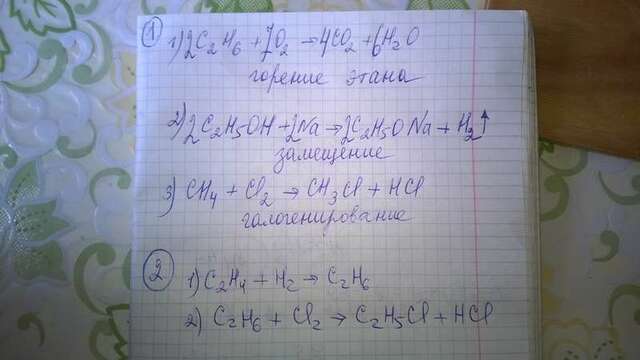 ① 1) 2C₂H₆ + 7O₂ → 4CO₂ + 6H₂O
горение этана
2) 2C₂H₅OH + 2Na → 2C₂H₅ONa + H₂↑
замещение
3) CH₄ + Cl₂ → CH₃Cl + HCl
галогенирование
② 1) C₂H₄ + H₂ → C₂H₆
2) C₂H₆ + Cl₂ → C₂H₅Cl + HCl